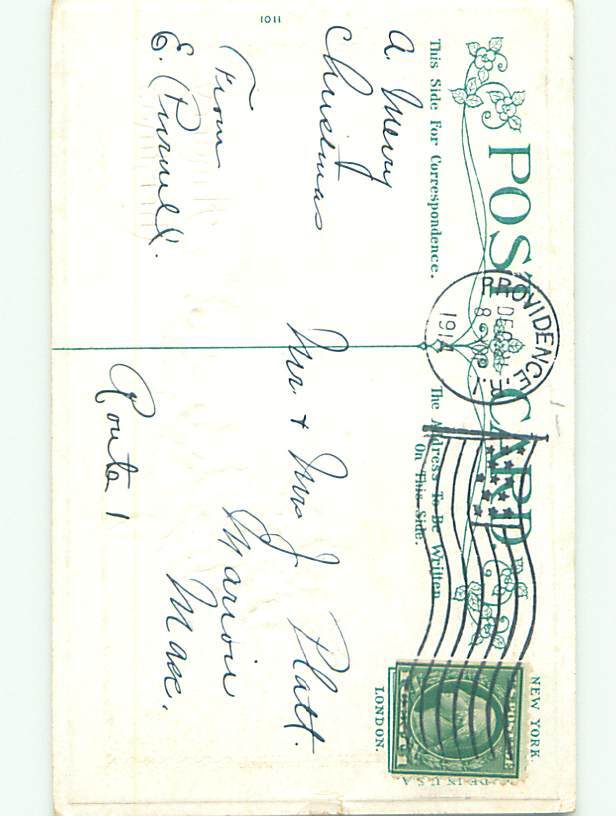 POST CARD
This Side For Correspondence.
The Address To Be Written
On This Side.
NEW YORK.
LONDON.
DE IN U.S.A
PROVIDENCE R.I.
DEC
8
191
A Merry
Christmas
From
E. Purnell.
Mr. + Mrs J. Platt.
Marion
Mass.
Route 1
1011